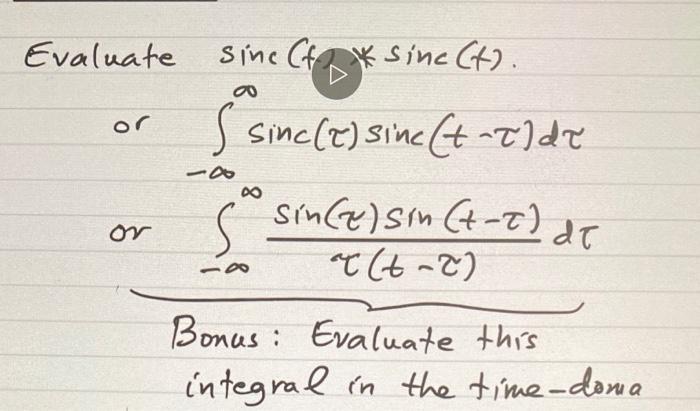 Evaluate sinc(t) * sinc(t).
or ∫_{-∞}^{∞} sinc(τ) sinc(t-τ) dτ
or ∫_{-∞}^{∞} \frac{sin(τ) sin(t-τ)}{τ(t-τ)} dτ
Bonus: Evaluate this
integral in the time-doma